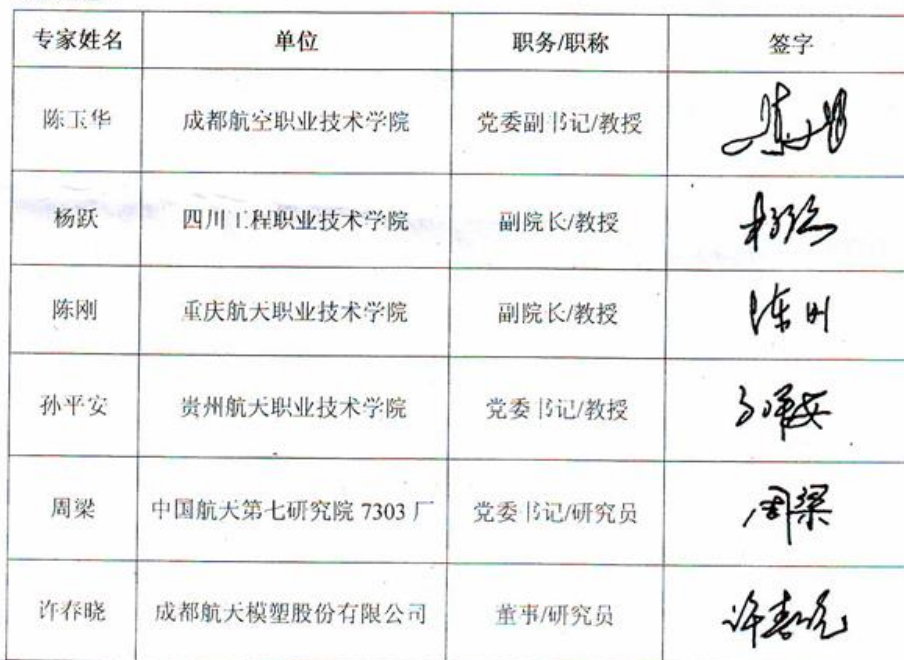 专家姓名 单位 职务/职称 签字
陈玉华 成都航空职业技术学院 党委副书记/教授
杨跃 四川工程职业技术学院 副院长/教授
陈刚 重庆航天职业技术学院 副院长/教授 陈刚
孙平安 贵州航天职业技术学院 党委书记/教授 孙平安
周梁 中国航天第七研究院 7303 厂 党委书记/研究员 周梁
许春晓 成都航天模塑股份有限公司 董事/研究员 许春晓